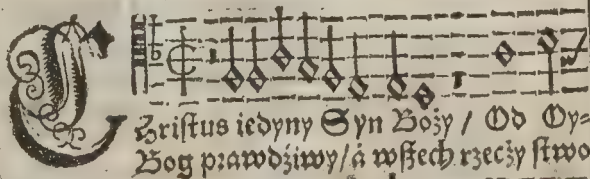 Christus iedyny Syn Boży / Od Oy=
Bog prawdźiwy / á wßech rzecży stwo